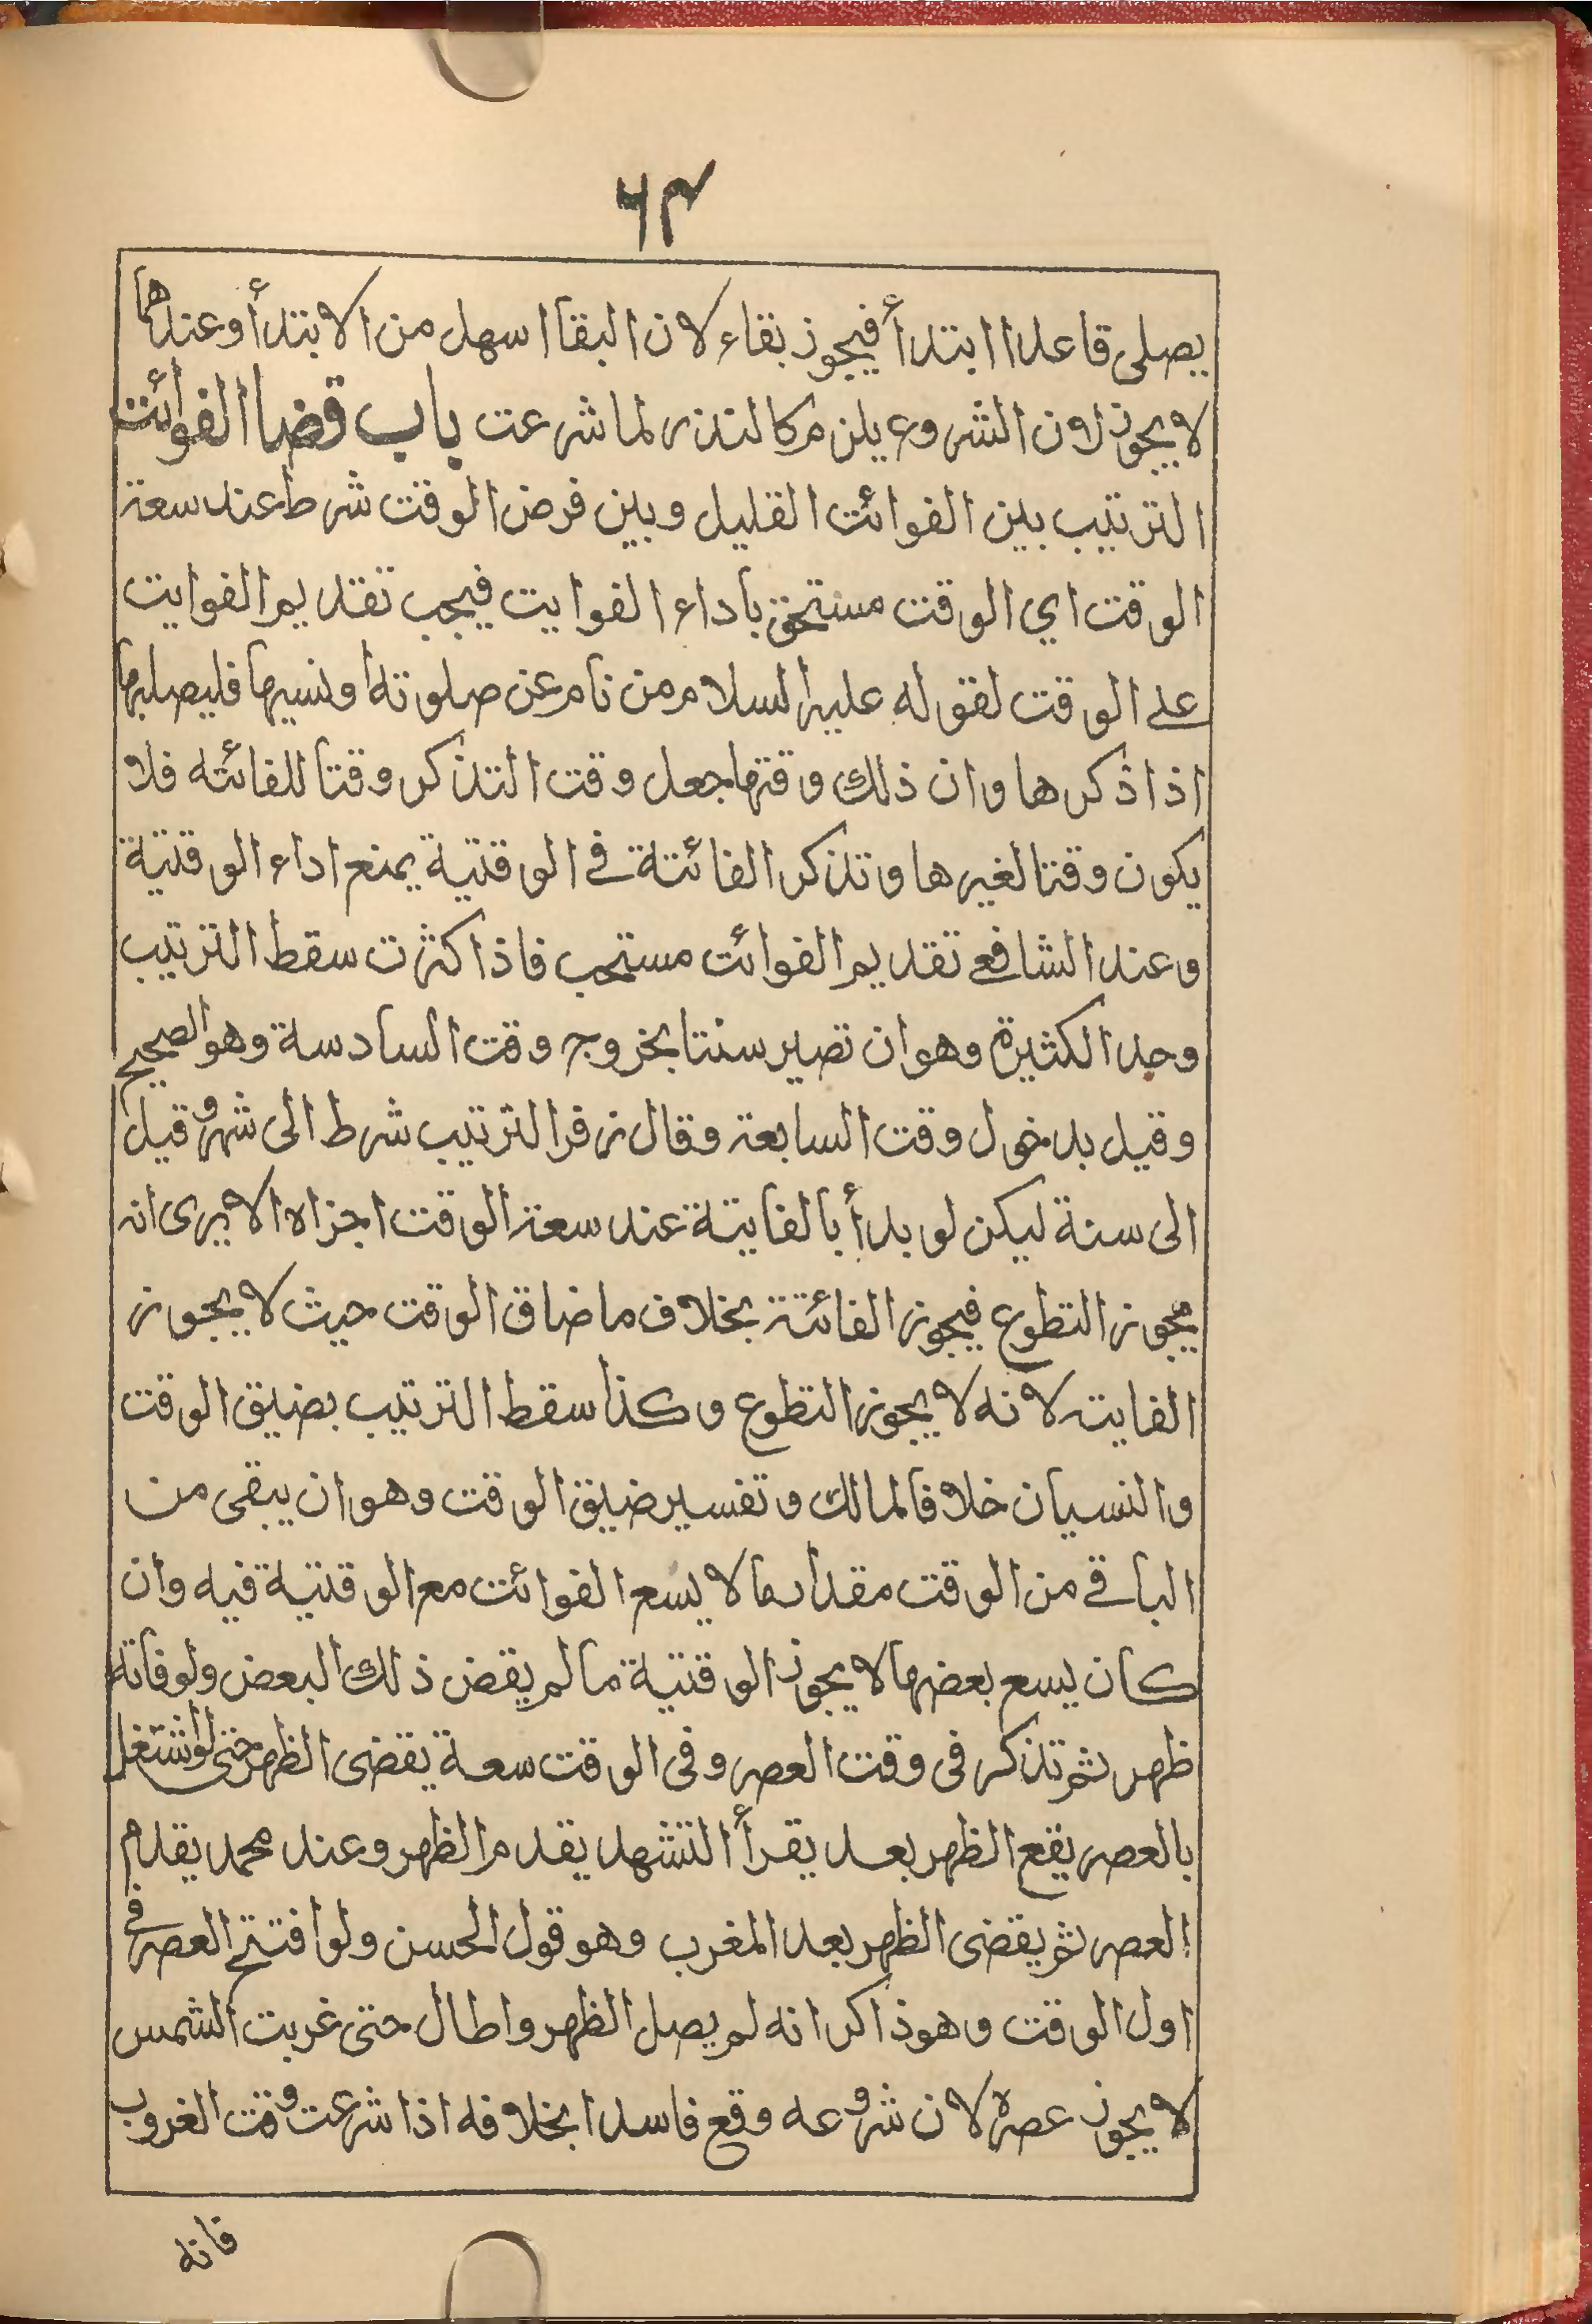 ٦٣
يصلى قاعدا ابتدأ فيجوز بقاء لان البقا اسهل من الابتدأ وعندهما
لا يجوز لان الشروع يلزم كالنذر لما شرعت باب قضا الفوائت
الترتيب بين الفوائت القليل وبين فرض الوقت شرط عند سعة
الوقت اي الوقت مستحق باداء الفوايت فيجب تقديم الفوايت
على الوقت لقوله عليه السلام من نام عن صلوته او نسيها فليصليها
اذا ذكرها وان ذلك وقتها جعل وقت التذكر وقتا للفائته فلا
يكون وقتا لغيرها وتذكر الفائتة في الوقتية يمنع اداء الوقتية
وعند الشافعي تقديم الفوائت مستحب فاذا كثرت سقط الترتيب
وحد الكثيرة وهو ان تصير ستا بخروج وقت السادسة وهو الصحيح
وقيل بدخول وقت السابعة وقال زفر الترتيب شرط الى شهر وقيل
الى سنة ليكن لو بدأ بالفايتة عند سعة الوقت اجزاه الا يرى انه
يجوز التطوع فيجوز الفائتة بخلاف ما ضاق الوقت حيث لا يجوز
الفايتة لانه لا يجوز التطوع وكذا سقط الترتيب بضيق الوقت
والنسيان خلافا لمالك وتفسير ضيق الوقت وهو ان يبقى من
الباقي من الوقت مقدار ما لا يسع الفوائت مع الوقتية فيه وان
كان يسع بعضها لا يجوز الوقتية ما لم يقض ذلك البعض ولو فاته
ظهر ثم تذكر في وقت العصر وفي الوقت سعة يقضى الظهر حتى لو اشتغل
بالعصر يقع الظهر بعد يقرأ التشهد يقدم الظهر وعند محمد يقدم
العصر ثم يقضى الظهر بعد المغرب وهو قول الحسن ولو افتتح العصر في
اول الوقت وهو ذاكر انه لم يصل الظهر واطال حتى غربت الشمس
لا يجوز عصره لان شروعه وقع فاسدا بخلافه اذا شرعت وقت الغروب
فانه